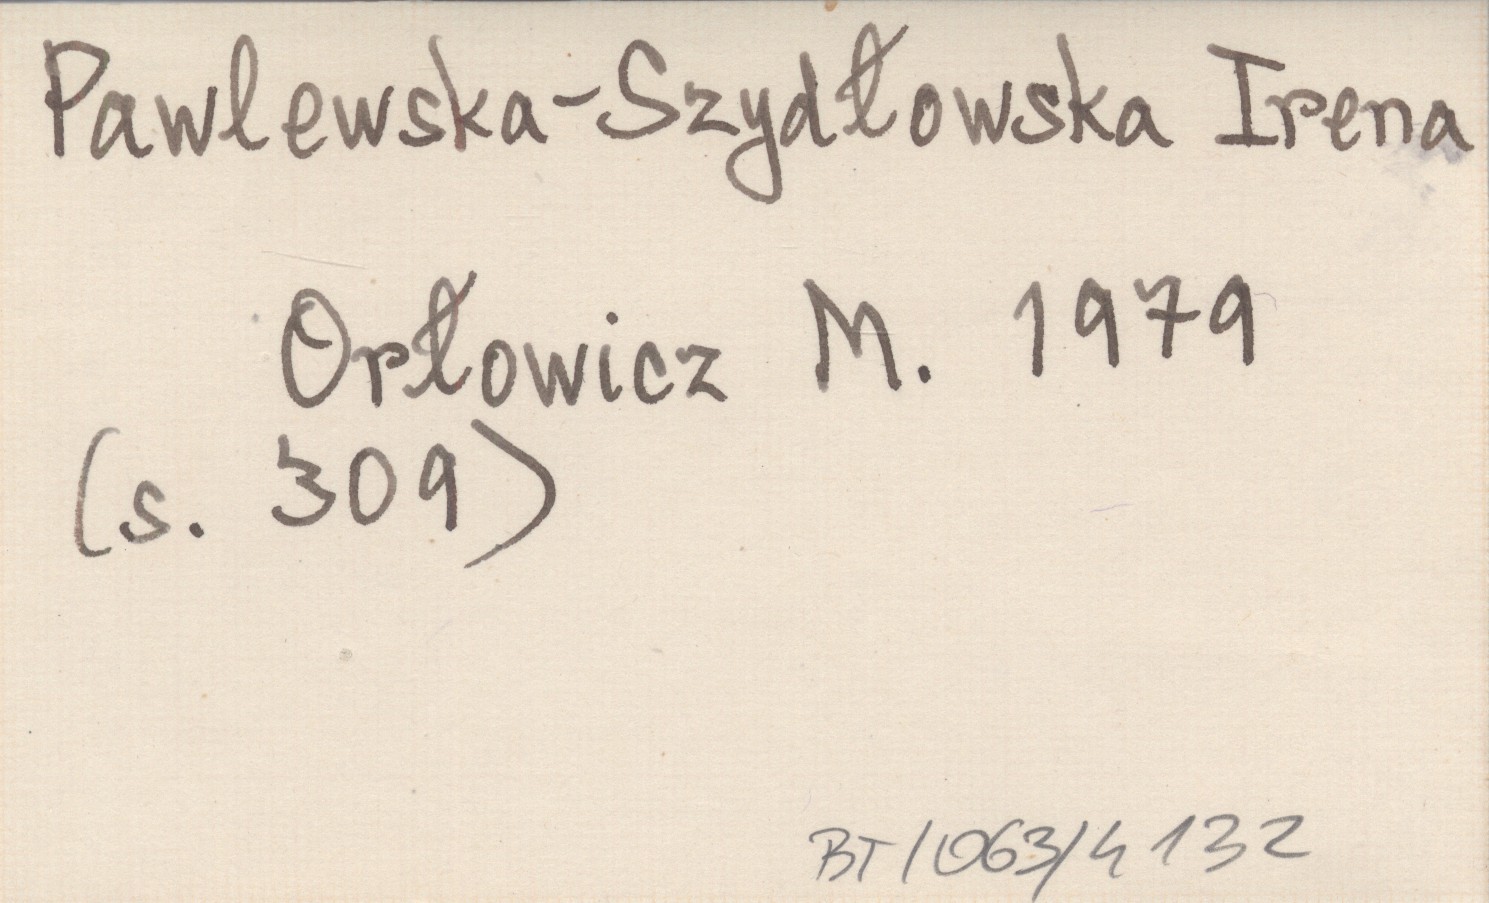 Pawlewska-Szydłowska Irena
Orłowicz M. 1979
(s. 309)
BT/063/4132